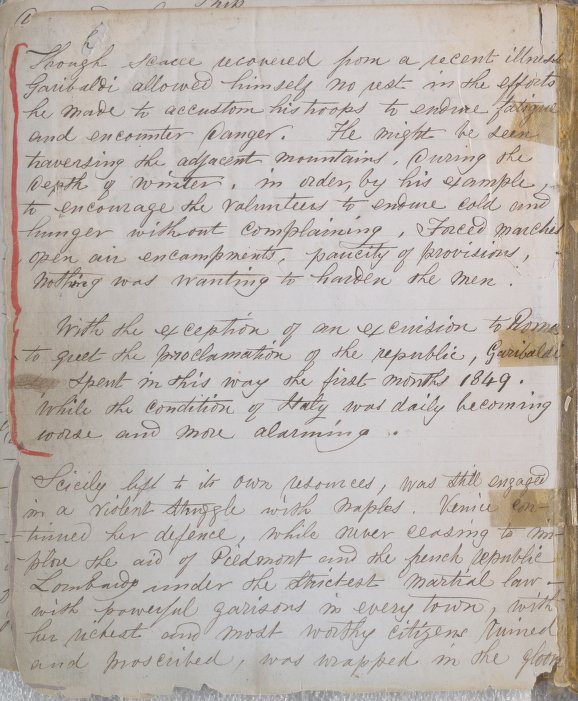 Though scarce recovered from a recent illness
Garibaldi allowed himself no rest in the efforts
he made to accustom his troops to endure fatigue
and encounter danger. He might be seen
traversing the adjacent mountains, during the
depth of winter, in order, by his example,
to encourage the volunteers to endure cold and
hunger without complaining, Forced marches
open air encampments, paucity of provisions,
nothing was wanting to harden the men.
With the exception of an excursion to Rome
to greet the proclamation of the republic, Garibaldi
spent in this way the first months 1849.
While the condition of Italy was daily becoming
worse and more alarming.
Scicily left to its own resources, was still engaged
in a violent struggle with Naples. Venice con-
tinued her defence, while never ceasing to im-
plore the aid of Piedmont and the french republic
Lombardy under the strictest martial law -
with powerful garisons in every town, with
her richest and most worthy citizens ruined
and proscribed, was wrapped in the gloom